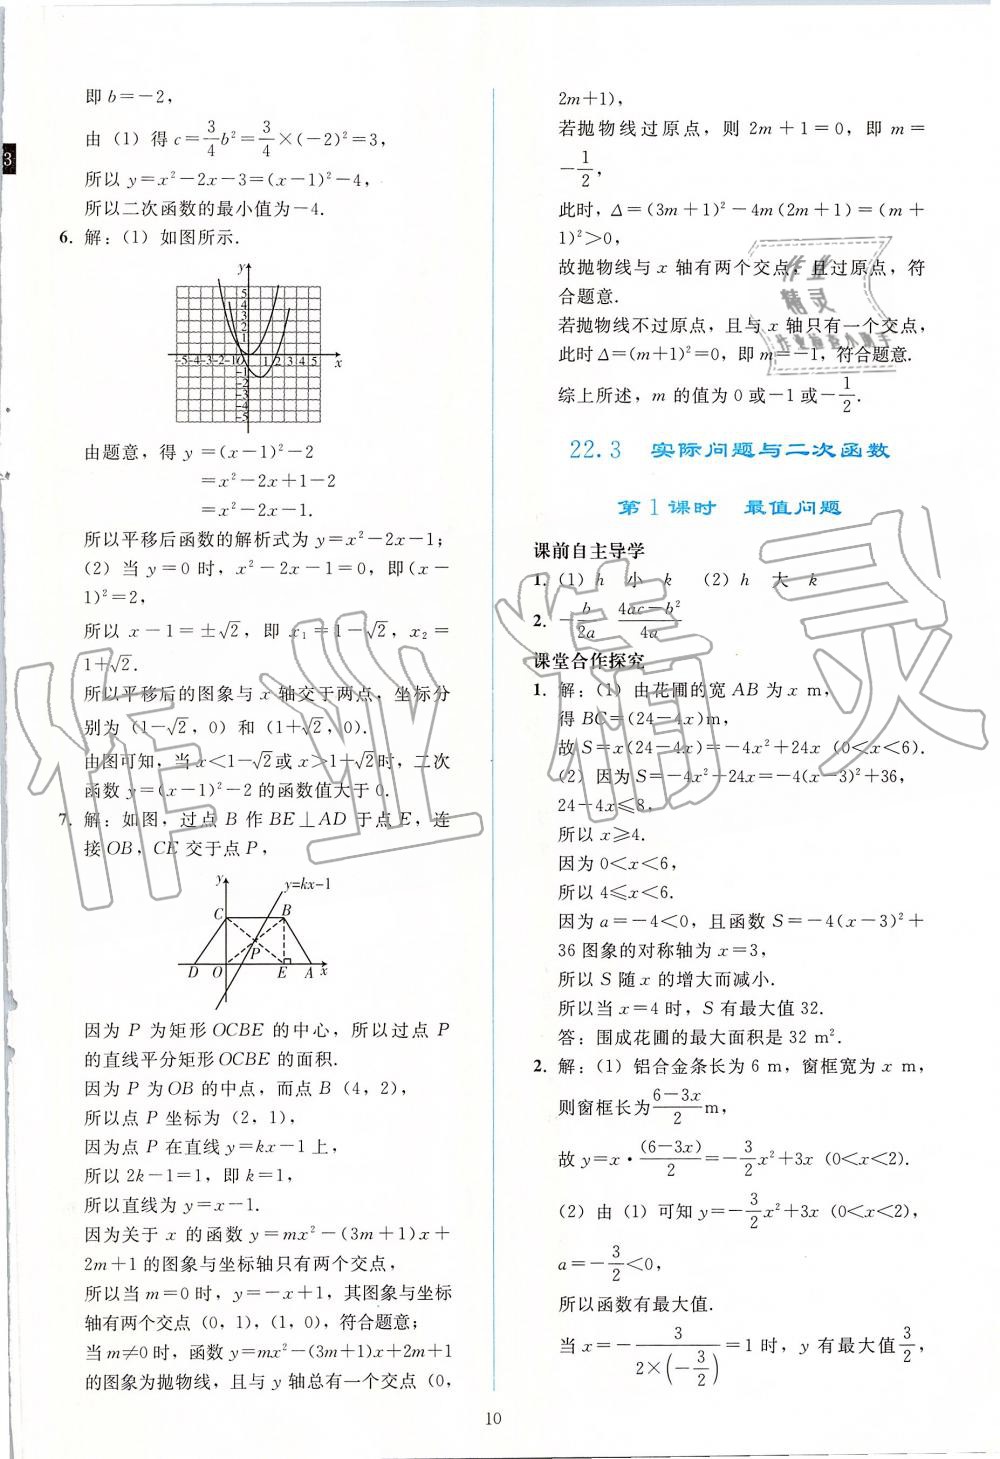 即 b=-2,
由 (1) 得 c=3/4 b²=3/4×(-2)²=3,
所以 y=x²-2x-3=(x-1)²-4,
所以二次函数的最小值为-4.
6. 解: (1) 如图所示.
y
5
4
3
2
1
-5-4-3-2-1 O 1 2 3 4 5 x
-1
-2
-3
-4
-5
由题意, 得 y=(x-1)²-2
=x²-2x+1-2
=x²-2x-1.
所以平移后函数的解析式为 y=x²-2x-1;
(2) 当 y=0 时, x²-2x-1=0, 即(x-
1)²=2,
所以 x-1=±√2, 即 x₁=1-√2, x₂=
1+√2.
所以平移后的图象与 x 轴交于两点, 坐标分
别为 (1-√2, 0) 和 (1+√2, 0).
由图可知, 当 x<1-√2或 x>1+√2时, 二次
函数 y=(x-1)²-2 的函数值大于 0.
7. 解: 如图, 过点 B 作 BE⊥AD 于点 E, 连
接 OB, CE 交于点 P,
y y=kx-1
C B
P
D O E A x
因为 P 为矩形 OCBE 的中心, 所以过点 P
的直线平分矩形 OCBE 的面积.
因为 P 为 OB 的中点, 而点 B (4, 2),
所以点 P 坐标为 (2, 1),
因为点 P 在直线 y=kx-1 上,
所以 2k-1=1, 即 k=1,
所以直线为 y=x-1.
因为关于 x 的函数 y=mx²-(3m+1)x+
2m+1 的图象与坐标轴只有两个交点,
所以当 m=0 时, y=-x+1, 其图象与坐标
轴有两个交点 (0, 1), (1, 0), 符合题意;
当 m≠0 时, 函数 y=mx²-(3m+1)x+2m+1
的图象为抛物线, 且与 y 轴总有一个交点 (0,
2m+1),
若抛物线过原点, 则 2m+1=0, 即 m=
-1/2,
此时, Δ=(3m+1)²-4m(2m+1)=(m+
1)²>0,
故抛物线与 x 轴有两个交点, 且过原点, 符
合题意.
若抛物线不过原点, 且与 x 轴只有一个交点,
此时 Δ=(m+1)²=0, 即 m=-1, 符合题意.
综上所述, m 的值为 0 或-1 或-1/2.
22.3 实际问题与二次函数
第 1 课时 最值问题
课前自主导学
1. (1) h 小 k (2) h 大 k
2. -b/2a (4ac-b²)/4a
课堂合作探究
1. 解: (1) 由花圃的宽 AB 为 x m,
得 BC=(24-4x)m,
故 S=x(24-4x)=-4x²+24x (0<x<6).
(2) 因为 S=-4x²+24x=-4(x-3)²+36,
24-4x≤8,
所以 x≥4.
因为 0<x<6,
所以 4≤x<6.
因为 a=-4<0, 且函数 S=-4(x-3)²+
36 图象的对称轴为 x=3,
所以 S 随 x 的增大而减小.
所以当 x=4 时, S 有最大值 32.
答: 围成花圃的最大面积是 32 m².
2. 解: (1) 铝合金条长为 6 m, 窗框宽为 x m,
则窗框长为(6-3x)/2 m,
故 y=x·(6-3x)/2=-3/2 x²+3x (0<x<2).
(2) 由 (1) 可知 y=-3/2 x²+3x (0<x<2),
a=-3/2<0,
所以函数有最大值.
当 x=-3/(2×(-3/2))=1 时, y 有最大值 3/2,
10
3
作业精灵
作业
精灵